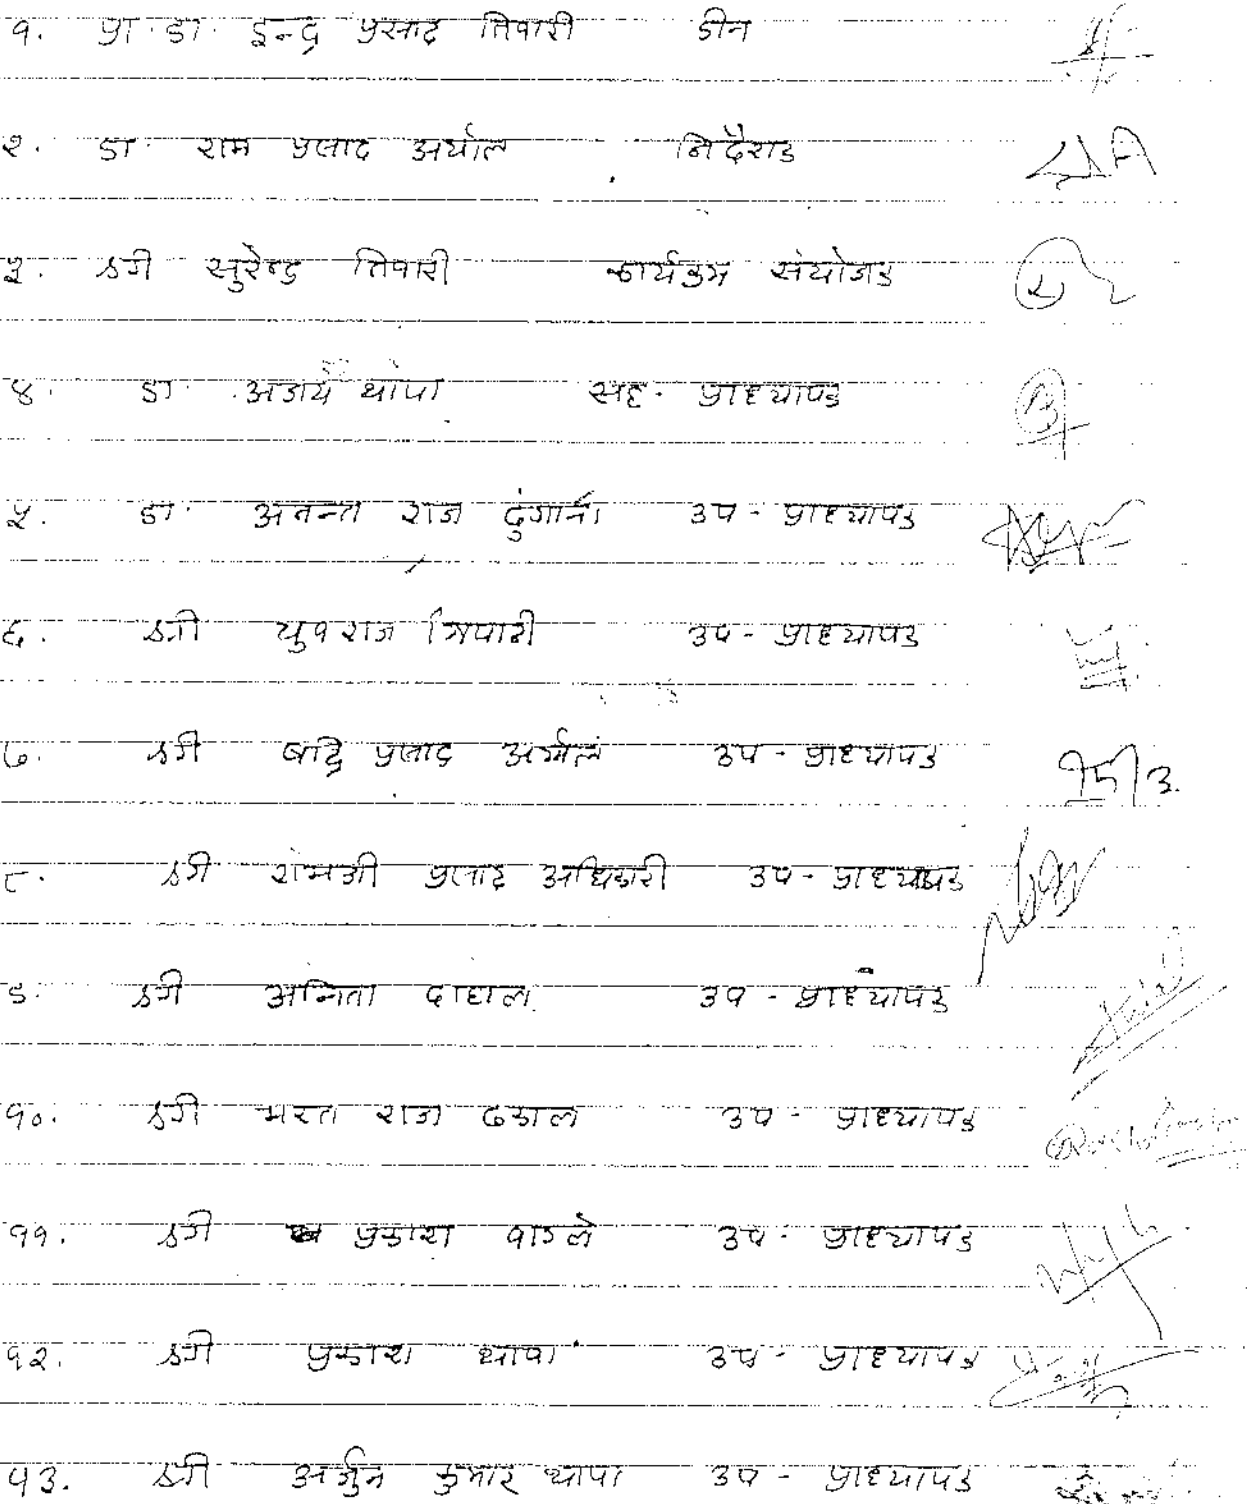 १. प्रा. डा. इन्द्र प्रसाद तिवारी डीन
२. डा. राम प्रसाद अर्याल निर्देशक
३. श्री सुरेन्द्र तिवारी कार्यक्रम संयोजक
४. डा. अजय थापा सह-प्राध्यापक
५. डा. अनन्त राज दुंगाना उप-प्राध्यापक
६. श्री युवराज त्रिपाठी उप-प्राध्यापक
७. श्री बद्रि प्रसाद अर्याल उप-प्राध्यापक
८. श्री रामजी प्रसाद अधिकारी उप-प्राध्यापक
९. श्री अनिता दाहाल उप-प्राध्यापक
१०. श्री भरत राज ढकाल उप-प्राध्यापक
११. श्री प्रकाश पाण्डे उप-प्राध्यापक
१२. श्री प्रकाश थापा उप-प्राध्यापक
१३. श्री अर्जुन कुमार थापा उप-प्राध्यापक